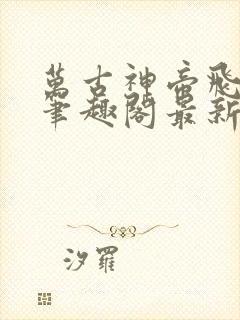 萬古神帝飛
筆趣閣最新
汐羅